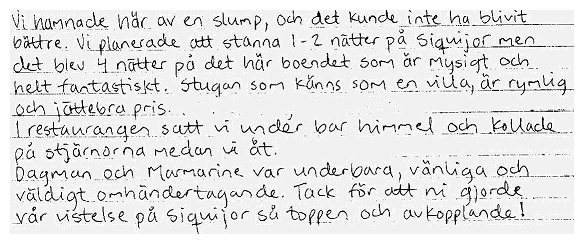 Vi hamnade här av en slump, och det kunde inte ha blivit
bättre. Vi planerade att stanna 1-2 nätter på Siquijor men
det blev 4 nätter på det här boendet som är mysigt och
helt fantastiskt. Stugan som känns som en villa, är rymlig
och jättebra pris.
I restaurangen satt vi under bar himmel och kollade
på stjärnorna medan vi åt.
Dagman och Marmarine var underbara, vänliga och
väldigt omhändertagande. Tack för att ni gjorde
vår vistelse på Siquijor så toppen och avkopplande!